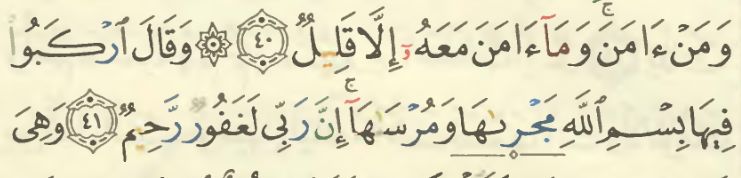 وَمَنْ ءَامَنَ ۚ وَمَآ ءَامَنَ مَعَهُۥٓ إِلَّا قَلِيلٌ ﴿٤٠﴾ ۞ وَقَالَ ٱرْكَبُوا۟
فِيهَا بِسْمِ ٱللَّهِ مَجْر۪ىٰهَا وَمُرْسَىٰهَآ ۚ إِنَّ رَبِّى لَغَفُورٌ رَّحِيمٌ ﴿٤١﴾ وَهِىَ